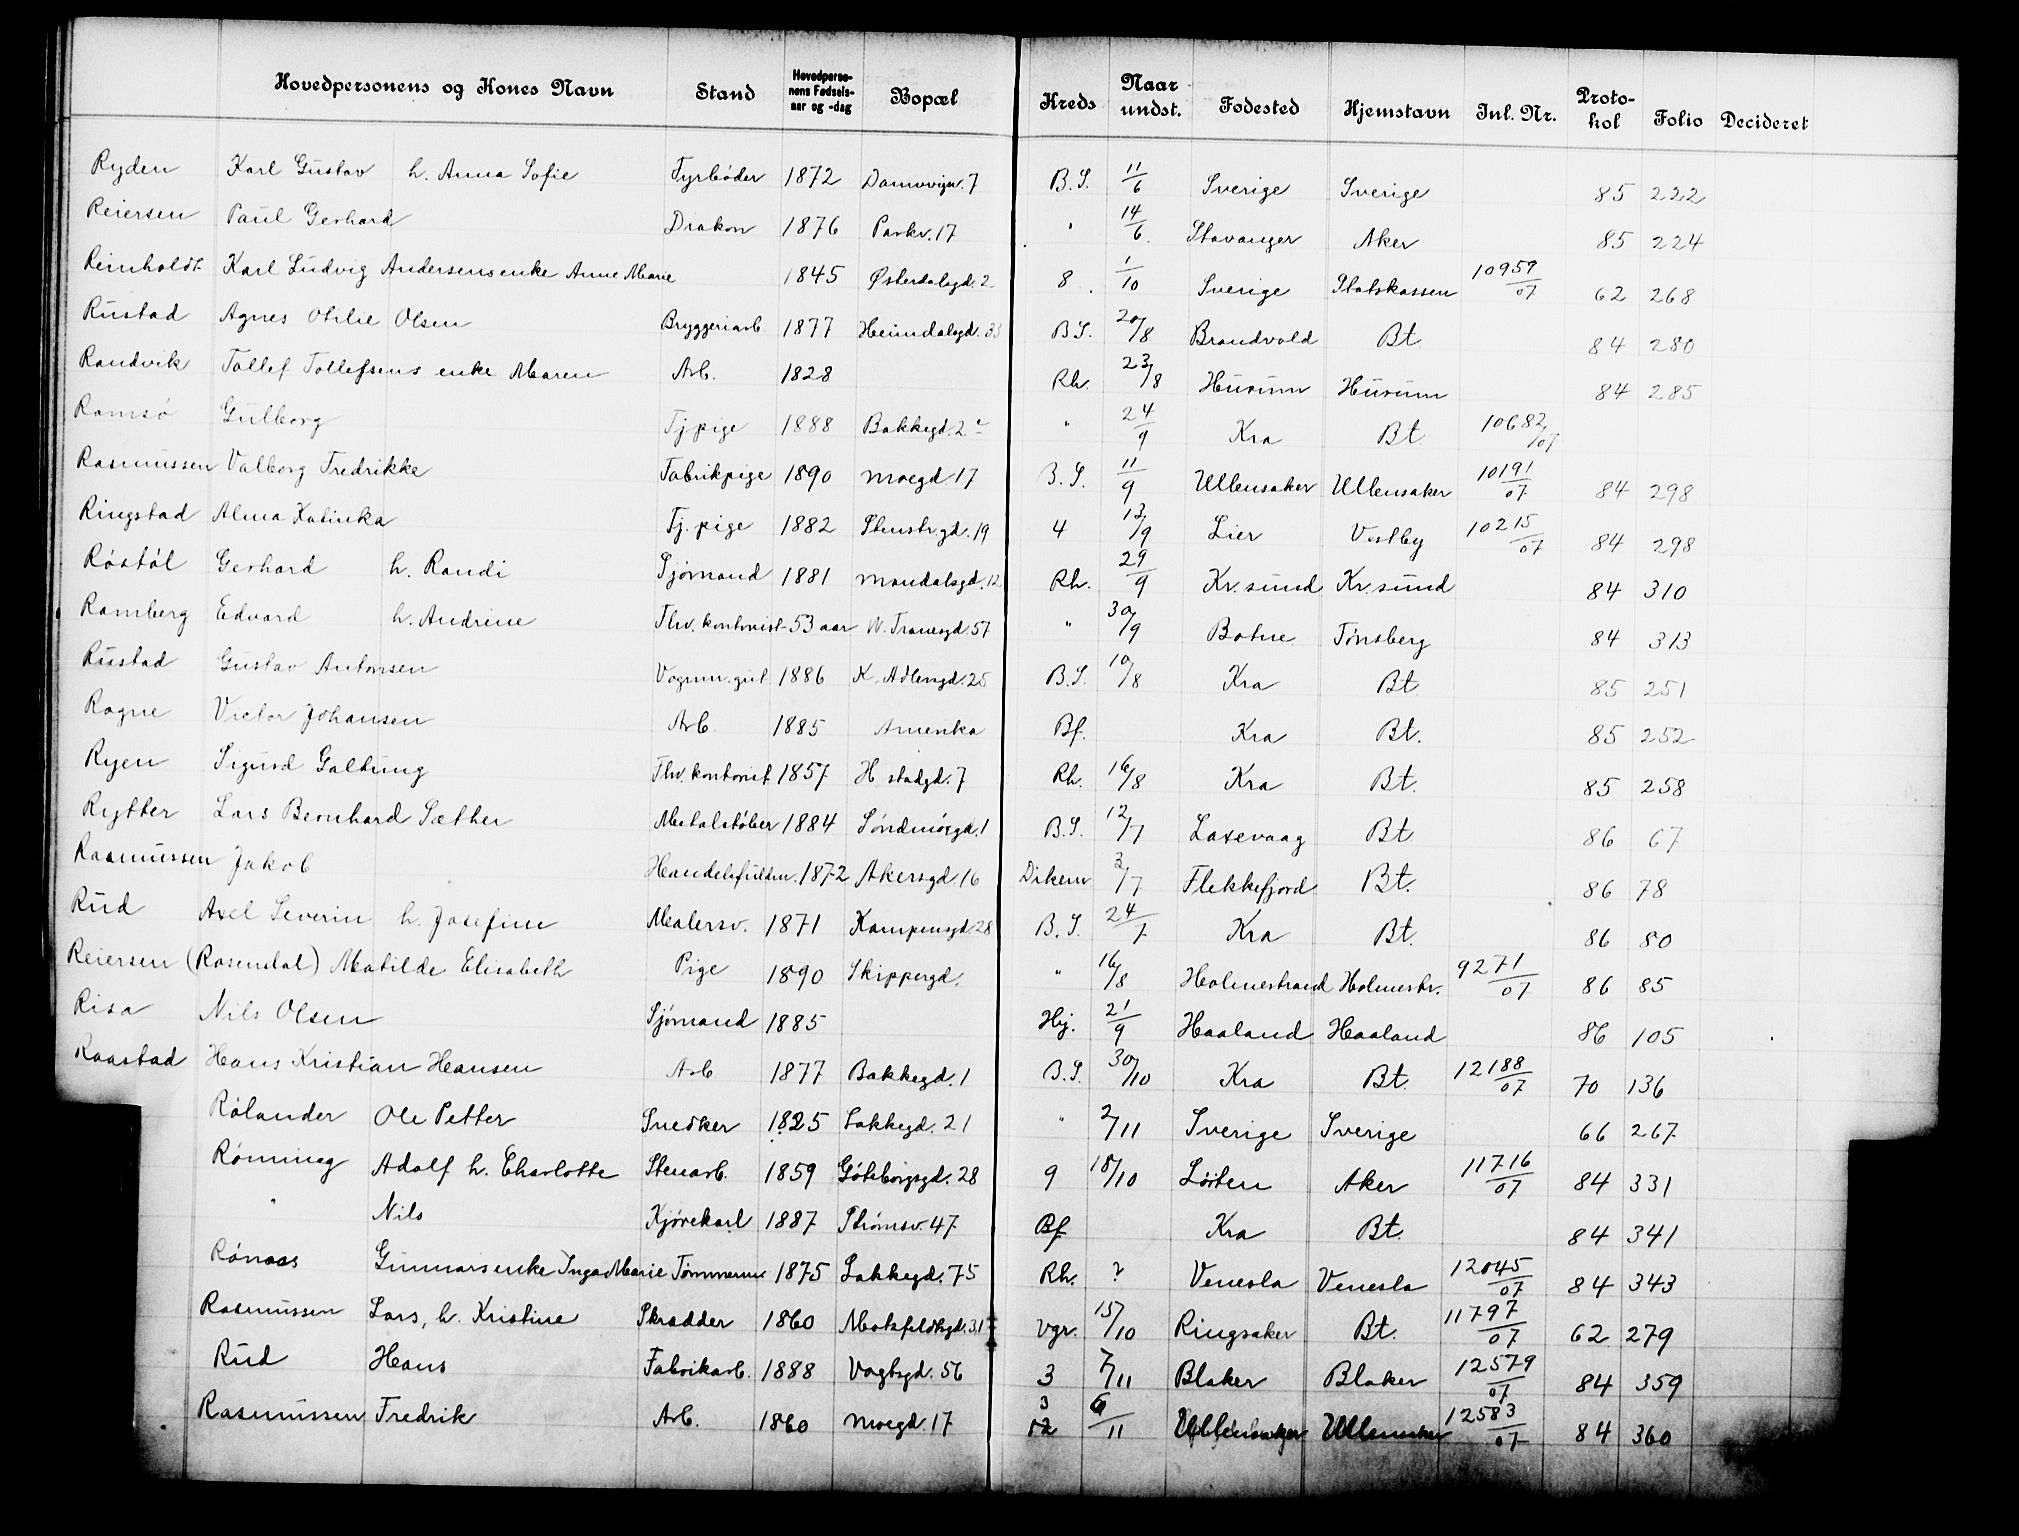 Hovedpersonens og Kones Navn Stand Hovedperso- nens Fødsels- aar og -dag Bopæl Kreds Naar undst. Fødested Hjemstavn Inl. Nr. Proto- kol Folio Decideret
Ryden Karl Gustav h. Anna Sofie Fyrbøder 1872 7 B.S. 11/6 Sverige Sverige 85 222
Reiersen Paul Gerhard Diakon 1876 Parkv. 17 " 14/6 Stavanger Aker 85 224
Reinholdt Karl Ludvig Andersens enke Anne Marie 1845 Østerdalsgd. 2 8 1/10 Sverige Statskassen 10959/07 62 268
Rustad Agnes Otilie Olsen Bryggeriarb 1877 Heimdalsgd. 33 B.S. 20/8 Brandvold Bt. 84 280
Randvik Tollef Tollefsens enke Maren Arb. 1828 Rh. 23/8 Hurum Hurum 84 285
Ramsø Gulborg Tj.pige 1888 Bakkegd. 2 " 24/9 Kra Bt. 10682/07
Rasmussen Valborg Fredrikke Fabrikpige 1890 Moegd 17 B.S. 11/9 Ullensaker Ullensaker 10191/07 84 298
Ringstad Alma Katinka Tj. pige 1882 Stenstr.gd. 19 4 13/9 Lier Vestby 10215/07 84 298
Røstøl Gerhard h. Randi Sjømand 1881 Mandalsgd. 12 Rh. 29/9 Kr.sund Kr.sund 84 310
Ramberg Edvard h. Andrine Fhv. kontorist 53 aar N. Tranesgd. 57 " 30/9 Botne Tønsberg 84 313
Rustad Gustav Antonsen Vognm.gut 1886 K. Adlersgd. 25 B.S. 10/8 Kra Bt. 85 251
Ragne Victor Johansen Arb. 1885 Amerika Bf. Kra Bt. 85 252
Ryen Sigurd Galtung Fhv. kontorist 1857 H stadgd. 7 Rh. 16/8 Kra Bt. 85 258
Rytter Lars Bernhard Sæther Metalstøber 1884 Søndmørgd. 1 B.S. 12/7 Laxevaag Bt. 86 67
Rasmussen Jakob Handelsfuldm. 1872 Akersgd. 16 Dikem 3/7 Flekkefjord Bt. 86 78
Rud Axel Severin h. Josefine Malersv. 1871 Kampensgd. 28 B.S. 24/7 Kra Bt. 86 80
Reiersen (Rosendal) Matilde Elisabeth Pige 1890 Skippergd. " 16/8 Holmestrand Holmestr. 9271/07 86 85
Risa Nils Olsen Sjømand 1885 Hj. 21/9 Haaland Haaland 86 105
Raastad Hans Kristian Hansen Arb 1877 Bakkegd. 1 B.S. 30/10 Kra Bt. 12188/07 70 136
Rølander Ole Petter Snedker 1825 Lakkegd. 21 " 2/11 Sverige Sverige 66 267
Rønning Adolf h. Charlotte Stenarb. 1859 Gøteborgsgd. 28 9 18/10 Løiten Aker 11716/07 84 331
" Nils Kjørekarl 1887 Strømsv. 47 Bf Kra Bt. 84 341
Rønaas Gunnars enke Inga Marie Tømmerm 1875 Lakkegd. 75 Rh. ? Venesla Venesla 12045/07 84 343
Rasmussen Lars, h. Kristine Skrædder 1860 Motzfeldtsgd. 31 Vgr. 15/10 Ringsaker Bt. 11797/07 62 279
Rud Hans Fabrikarb. 1888 Vogtsgd. 56 3 7/11 Blaker Blaker 12579/07 84 359
Rasmussen Fredrik Arb. 1860 Moegd. 17 3 12 6/11 Ullensaker Ullensaker 12583/07 84 360